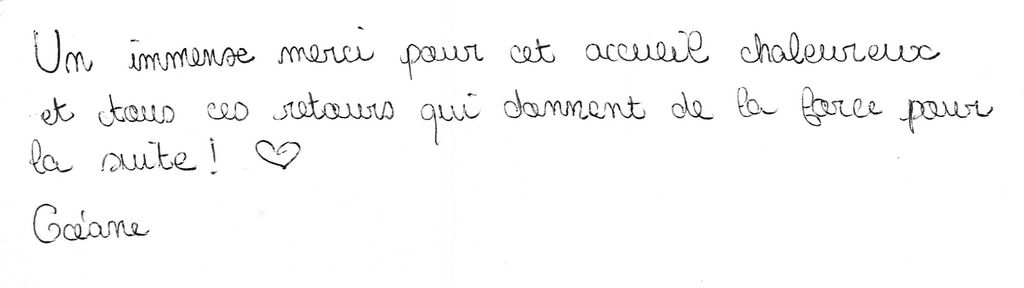 Un immense merci pour cet accueil chaleureux
et tous ces retours qui donnent de la force pour
la suite ! ♡
Océane